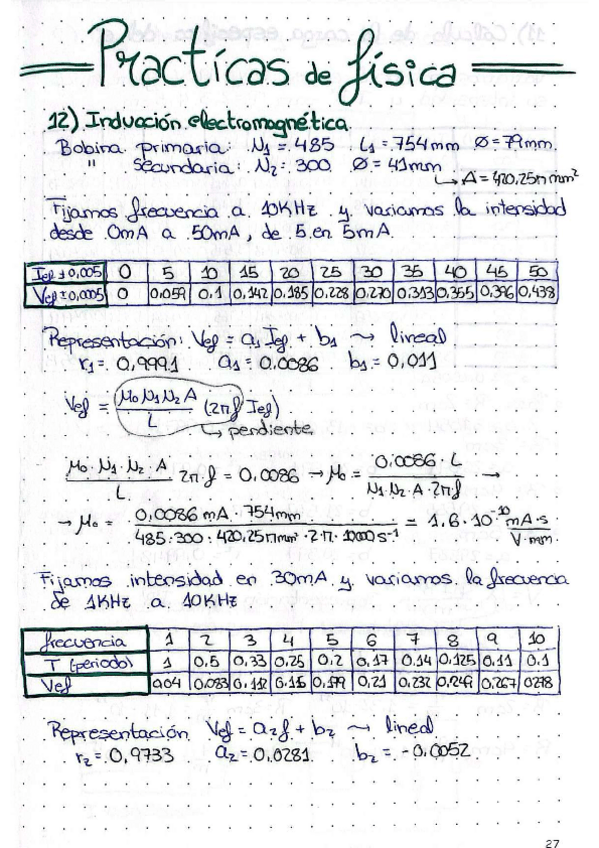 Practicas de física
12) Inducción electromagnética
Bobina primaria: N1 = 485 L1 = 754mm Ø = 79mm
" Secundaria: N2 = 300 Ø = 41mm
↳ A = 420,25π mm²
Fijamos frecuencia a 10KHz y variamos la intensidad
desde 0mA a 50mA, de 5 en 5mA.
Ief ± 0,005 0 5 10 15 20 25 30 35 40 45 50
Vef ± 0,0005 0 0,059 0,1 0,142 0,185 0,228 0,270 0,313 0,355 0,396 0,438
Representación: Vef = a1 Ief + b1 → lineal
r1 = 0,9991 a1 = 0,0086 b1 = 0,011
Vef = μ0 N1 N2 A / L (2π f Ief)
↳ pendiente
μ0 · N1 · N2 · A / L 2π · f = 0,0086 → μ0 = 0,0086 · L / N1 · N2 · A · 2π f →
→ μ0 = 0,0086 mA · 754mm / 485 · 300 · 420,25π mm² · 2 · π · 10000 s⁻¹ = 1,6 · 10⁻¹⁰ mA·s / V·mm
Fijamos intensidad en 30mA y variamos la frecuencia
de 1KHz a 10KHz
frecuencia 1 2 3 4 5 6 7 8 9 10
T (periodo) 1 0,5 0,33 0,25 0,2 0,17 0,14 0,125 0,11 0,1
Vef 0,04 0,083 0,21 0,232 0,267 0,278
Representación Vef = a2 f + b2 → lineal
r2 = 0,9733 a2 = 0,0281 b2 = -0,0052
27